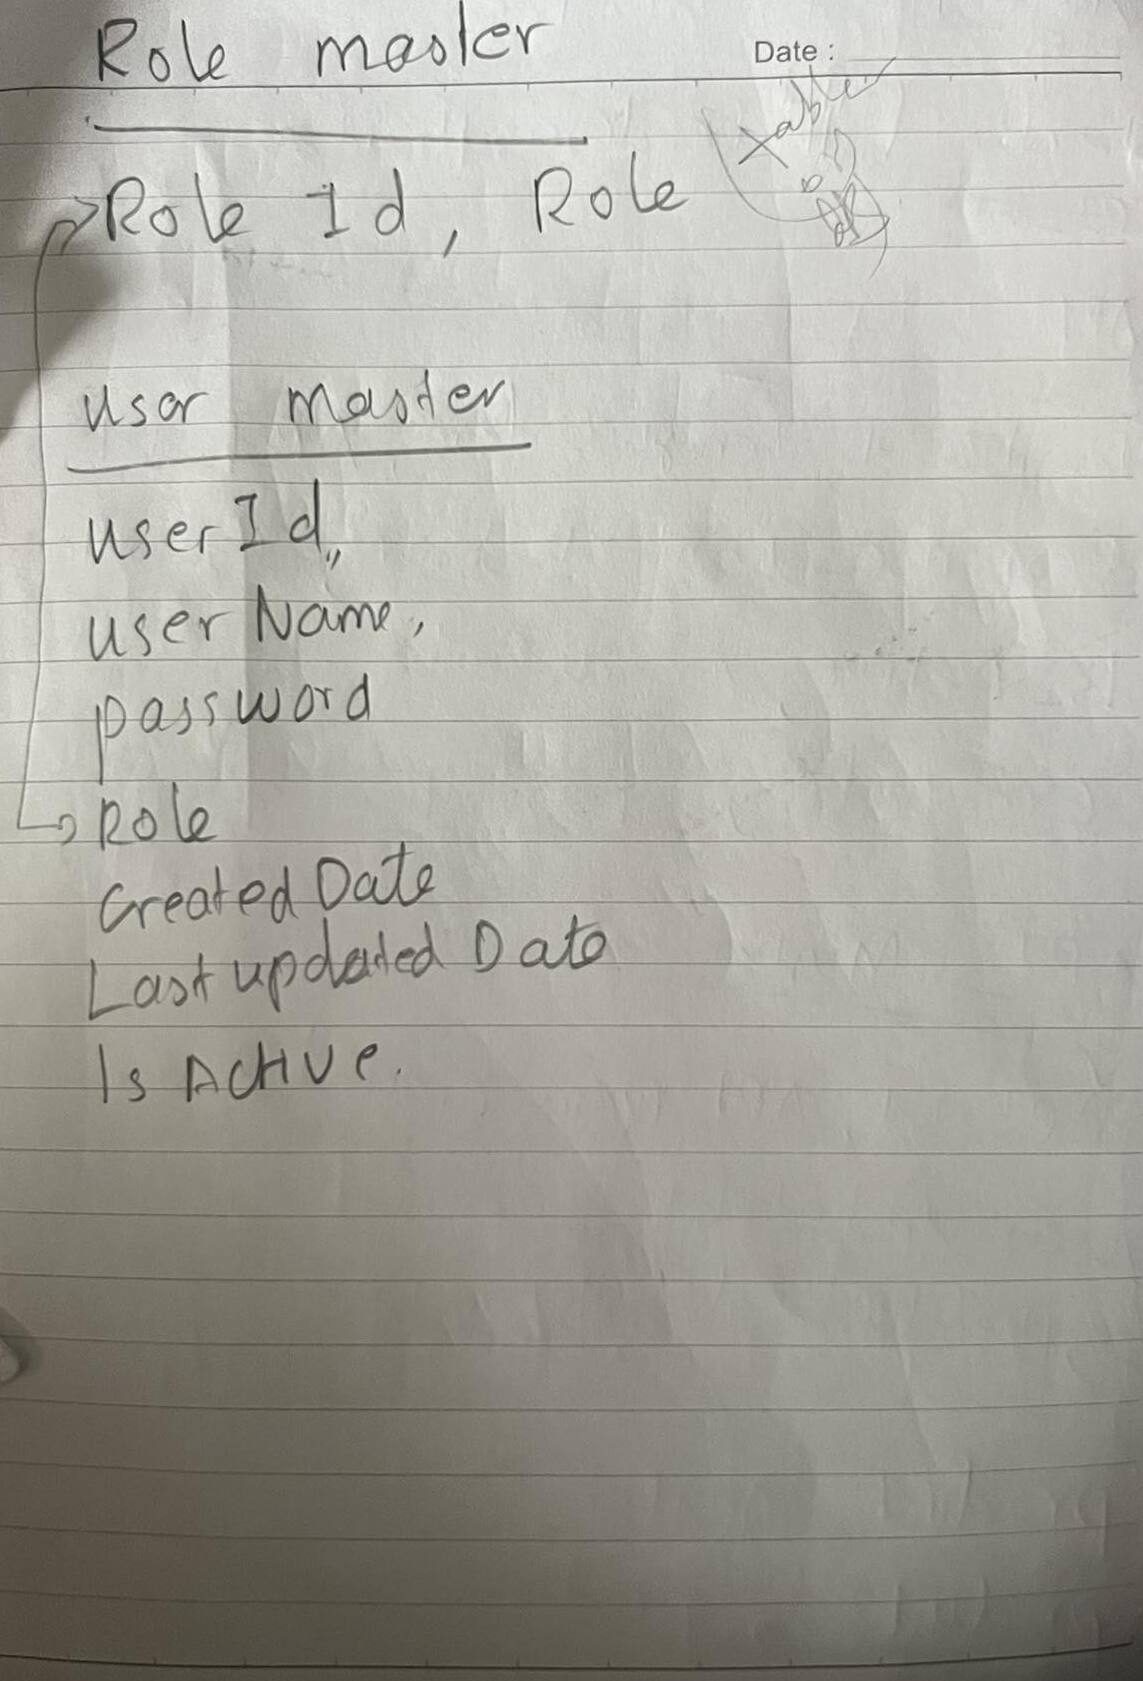 Role master
Date :
table
Role Id, Role
user master
userId,,
user Name,
password
Role
Created Date
Last updated Date
Is Active.